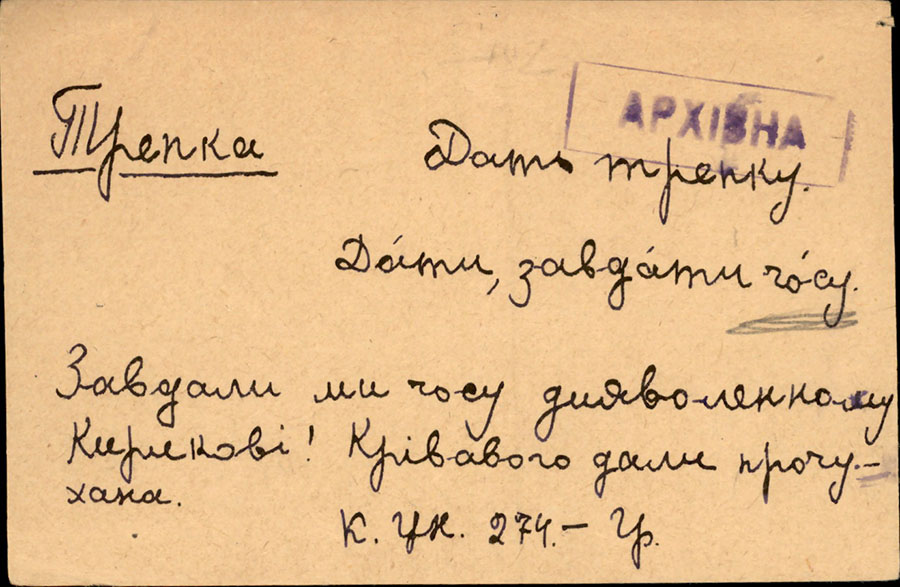 АРХІВНА
Трепка Дать трепку.
Да́ти, завда́ти чо́су.
Завдали ми чосу дияволенному
Кирикові! Крівавого дали прочу-
хана.
К. ЦН. 274.– Гр.